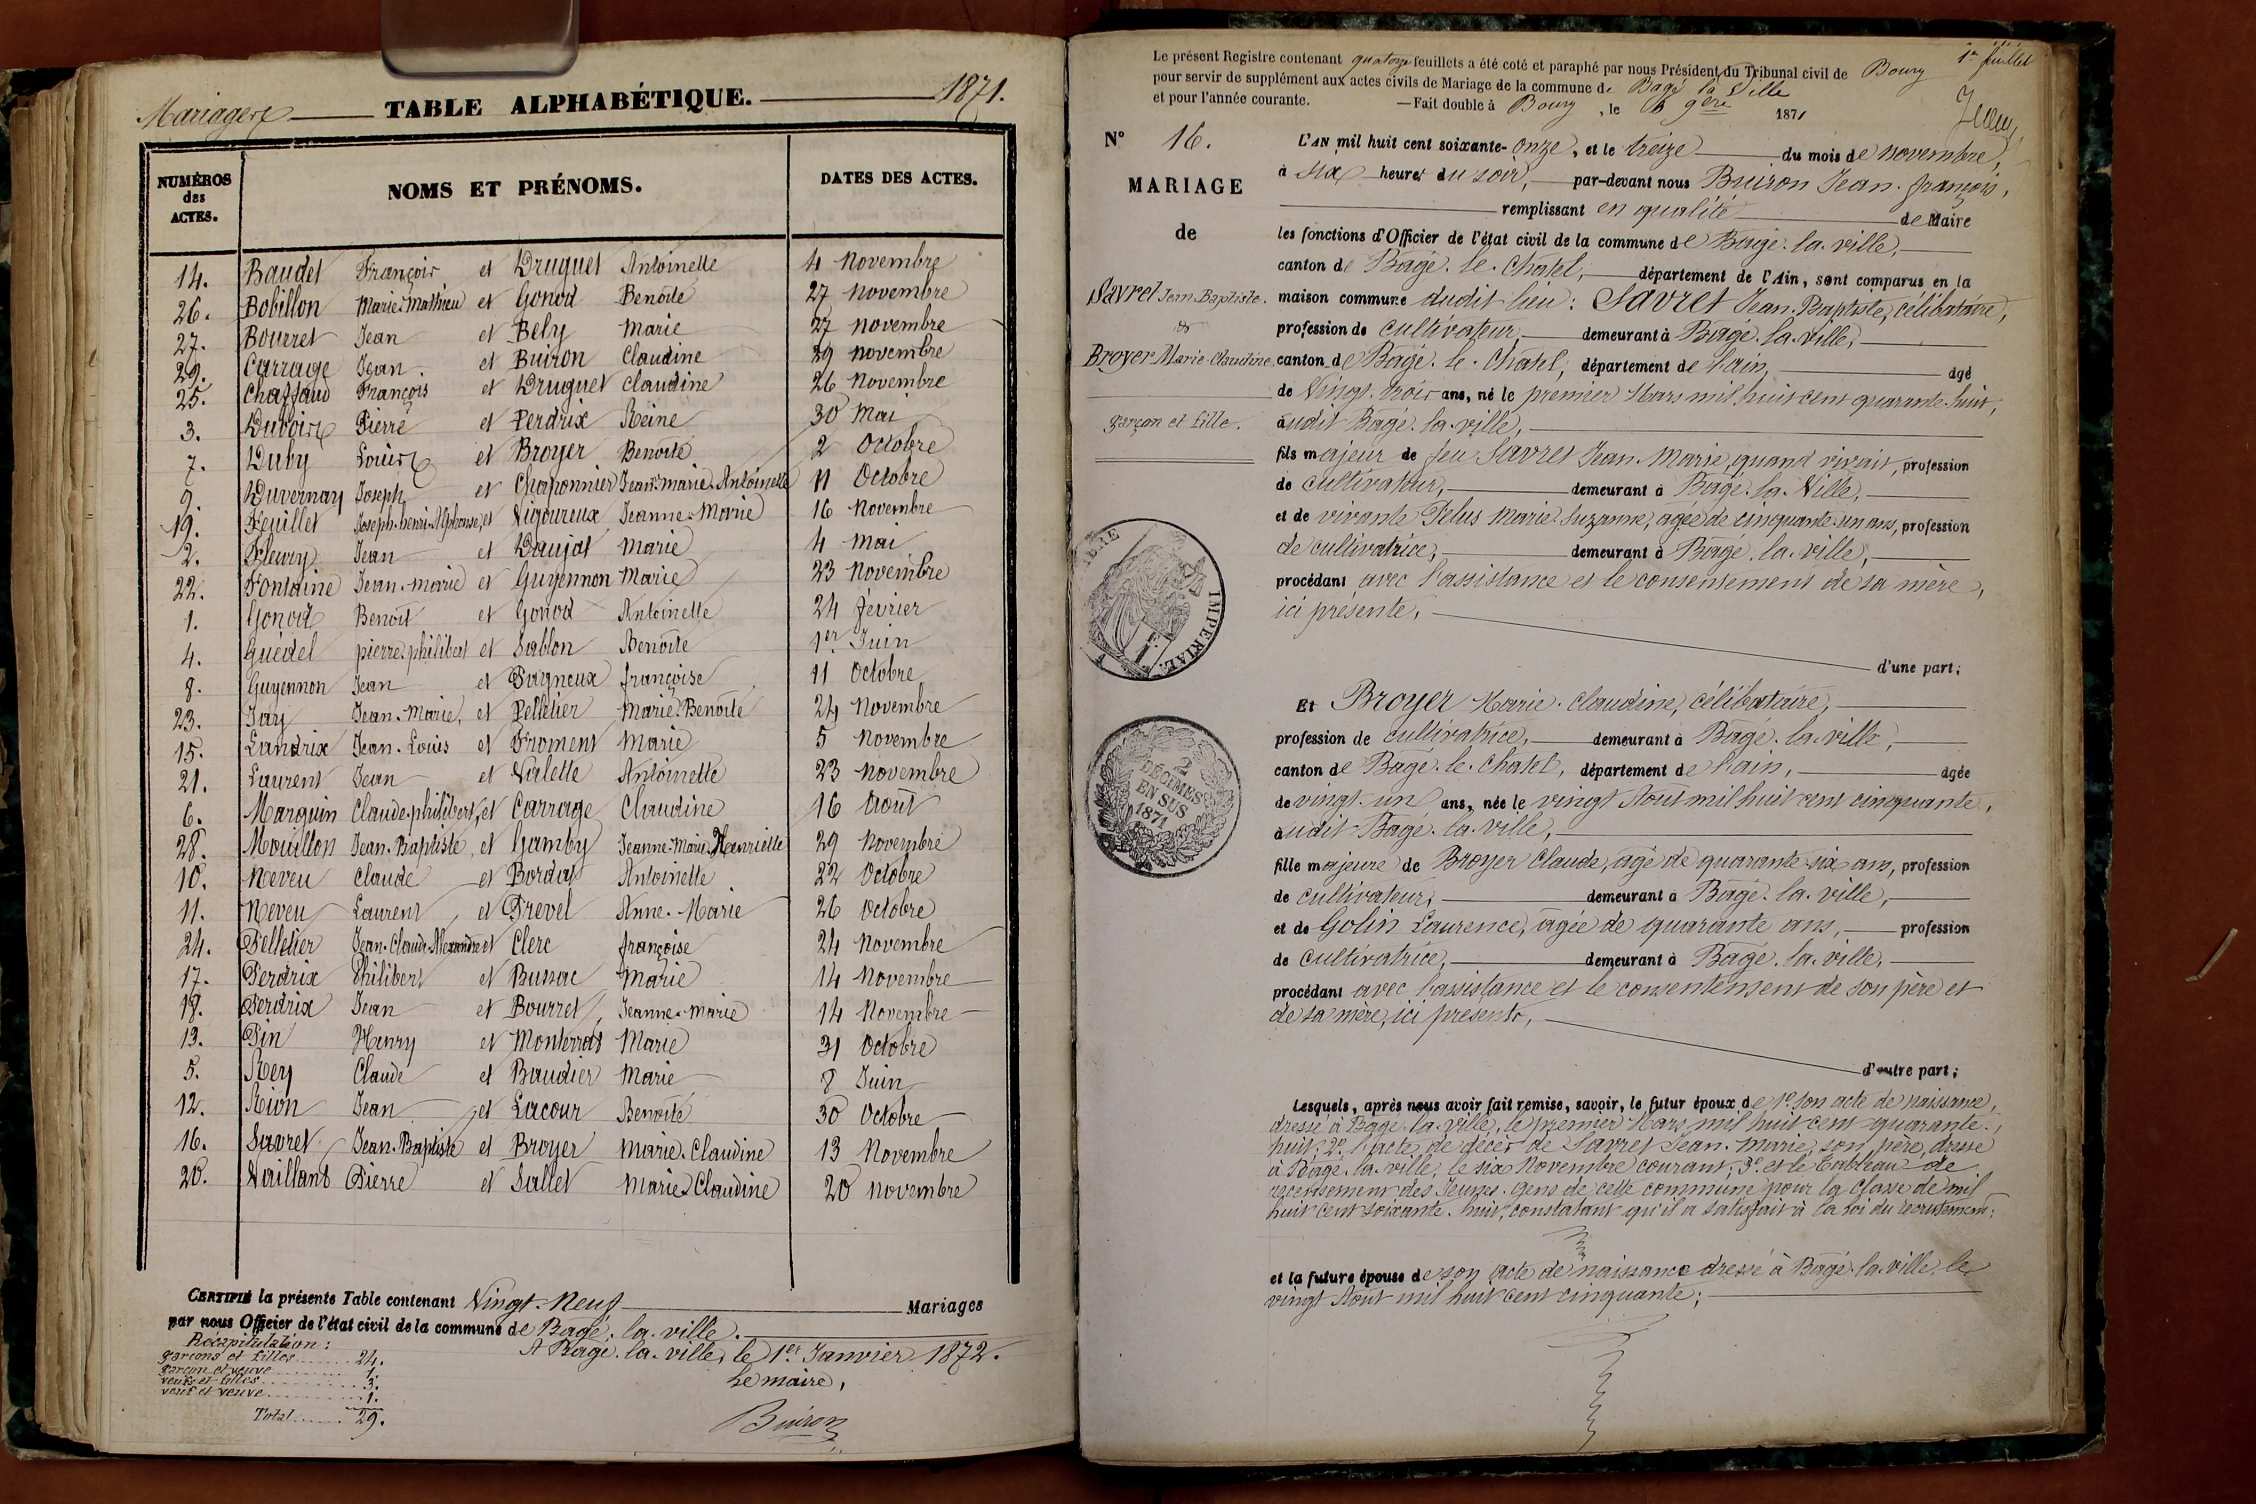 Mariages TABLE ALPHABÉTIQUE. 1871.
NUMÉROS des ACTES. NOMS ET PRÉNOMS. DATES DES ACTES.
14. Baudet François et Druguet Antoinette 4 Novembre
26. Bobillon Marie-Mathieu et Gonod Benoite 27 novembre
27. Bourret Jean et Bely Marie 27 novembre
29. Carrage Jean et Buiron Claudine 29 novembre
25. Chaffaud François et Druguet Claudine 26 Novembre
3. Duboirx Pierre et Perdrix Reine 30 Mai
7. Duby Louis et Broyer Benoite 2 Octobre
9. Duvernay Joseph et Chaponnier Jean-marie-Antoinette 11 Octobre
19. Feuillet Joseph-henri-Alphonse et Vigoureux Jeanne-Marie 16 Novembre
2. Fleury Jean et Daujat Marie 4 mai
22. Fontaine Jean-marie et Guyennon Marie 23 Novembre
1. Gonod Benoit et Gonod Antoinette 24 février
4. Guédel pierre-philibert et Sablon Benoite 1er Juin
8. Guyennon Jean et Pagneux françoise 11 Octobre
23. Jay Jean-Marie, et Pelletier Marie-Benoite 24 Novembre
15. Landrix Jean-Louis et Froment Marie 5 Novembre
21. Laurent Jean et Valette Antoinette 23 novembre
6. Marguin Claude-philibert, et Carrage Claudine 16 Août
28. Mouillon Jean-Baptiste, et Gamby Jeanne-Marie Henriette 29 Novembre
10. Neveu Claude et Bordat Antoinette 22 Octobre
11. Neveu Laurent, et Prevel Anne-Marie 26 Octobre
24. Pelletier Jean-Claude-Alexandre et Clerc françoise 24 Novembre
17. Perdrix Philibert et Bussac Marie 14 Novembre
18. Perdrix Jean et Bourret, Jeanne-marie 14 Novembre
13. Pin Henry et Monterrat Marie 31 Octobre
5. Rey Claude et Baudier Marie 8 Juin
12. Rion Jean et Lacour Benoite 30 Octobre
16. Savret Jean-Baptiste et Broyer Marie-Claudine 13 Novembre
20. Vaillant Pierre et Sallet Marie-Claudine 20 novembre
CERTIFIÉ la présente Table contenant Vingt-Neuf Mariages
par nous Officier de l'état civil de la commune de Bagé-la-ville.
A Bagé-la-ville, le 1er Janvier 1872.
Le maire,
Buiron
Récapitulation :
garçons et filles 24.
garçon et veuve 1.
veufs et filles 3.
veuf et veuve 1.
Total 29.
1er feuillet
Le présent Registre contenant quatorze feuillets a été coté et paraphé par nous Président du Tribunal civil de Bourg
pour servir de supplément aux actes civils de Mariage de la commune de Bagé la Ville
et pour l'année courante. —Fait double à Bourg, le 6 9bre 1871
N° 16.
MARIAGE
de
Savret Jean-Baptiste.
&
Broyer Marie-Claudine
garçon et fille.
IMPERIAL
2 DÉCIMES EN SUS 1871
L'AN mil huit cent soixante-onze, et le treize du mois de novembre,
à six heures du soir, par-devant nous Buiron Jean-françois,
remplissant en qualité de Maire
les fonctions d'Officier de l'état civil de la commune de Bagé-la-ville,
canton de Bagé-le-Chatel, département de l'Ain, sont comparus en la
maison commune dudit lieu : Savret Jean-Baptiste, célibataire,
profession de cultivateur, demeurant à Bagé-la-ville,
canton de Bagé-le-Chatel, département de l'ain, âgé
de Vingt-trois ans, né le premier Mars mil huit cent quarante-huit,
audit Bagé-la-ville,
fils majeur de feu Savret Jean-Marie, quand vivait, profession
de cultivateur, demeurant à Bagé-la-Ville,
et de vivante Pelus Marie-Suzanne, agée de cinquante-un ans, profession
de cultivatrice, demeurant à Bagé-la-ville,
procédant avec l'assistance et le consentement de sa mère,
ici présente,
d'une part ;
Et Broyer Marie-Claudine, célibataire,
profession de cultivatrice, demeurant à Bagé-la-ville,
canton de Bagé-le-Chatel, département de l'ain, âgée
de vingt-un ans, née le vingt Août mil huit cent cinquante,
audit Bagé-la-ville,
fille majeure de Broyer Claude, agé de quarante-six ans, profession
de cultivateur, demeurant à Bagé-la-ville,
et de Golin Laurence, agée de quarante ans, profession
de cultivatrice, demeurant à Bagé-la-ville,
procédant avec l'assistance et le consentement de son père et
de sa mère, ici présents,
d'autre part ;
Lesquels, après nous avoir fait remise, savoir, le futur époux de 1°. son acte de naissance,
dressé à Bagé-la-ville, le premier Mars mil huit cent quarante-
huit, 2°. l'acte de décès de Savret Jean-Marie, son père, dressé
à Bagé-la-ville, le six Novembre courant, 3°. et le tableau de
recensement des Jeunes-gens de cette commune pour la classe de mil
huit cent soixante-huit, constatant qu'il a satisfait à la loi du recrutement ;
et la future épouse de son acte de naissance dressé à Bagé-la-ville le
vingt Août mil huit cent cinquante ;